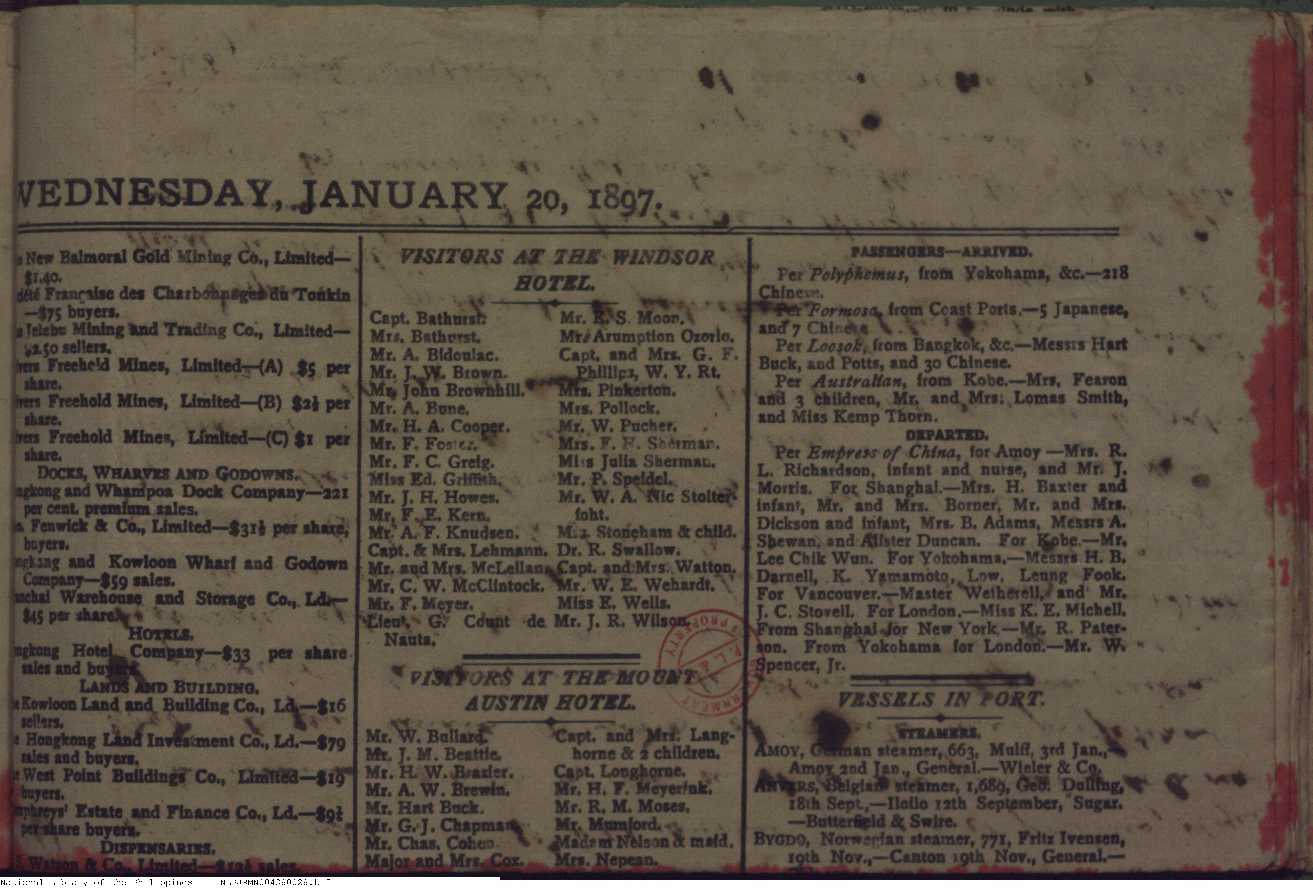 WEDNESDAY, JANUARY 20, 1897.
New Balmoral Gold Mining Co., Limited—
$1.40.
Française des Charbonnages du Tonkin
—$75 buyers.
Jelebu Mining and Trading Co., Limited—
$2.50 sellers.
Freehold Mines, Limited—(A) $5 per
share.
Freehold Mines, Limited—(B) $2½ per
share.
Freehold Mines, Limited—(C) $1 per
share.
DOCKS, WHARVES AND GODOWNS.
and Whampoa Dock Company—221
per cent. premium sales.
Fenwick & Co., Limited—$31½ per share,
buyers.
and Kowloon Wharf and Godown
Company—$59 sales.
Warehouse and Storage Co., Ld.—
$45 per share.
HOTELS.
Hotel Company—$33 per share
sales and buyers.
LANDS AND BUILDING.
Kowloon Land and Building Co., Ld.—$16
sellers.
Hongkong Land Investment Co., Ld.—$79
sales and buyers.
West Point Buildings Co., Limited—$19
buyers.
Estate and Finance Co., Ld.—$9½
per share buyers.
DISPENSARIES.
Watson & Co., Limited— sales.
VISITORS AT THE WINDSOR
HOTEL.
Capt. Bathurst.
Mrs. Bathurst.
Mr. A. Bidoulac.
Mr. J. W. Brown.
Mr. John Brownhill.
Mr. A. Bune.
Mr. H. A. Cooper.
Mr. F. Foster.
Mr. F. C. Greig.
Miss Ed. Griffith.
Mr. J. H. Howes.
Mr. F. E. Kern.
Mr. A. F. Knudsen.
Capt. & Mrs. Lehmann.
Mr. and Mrs. McLellan.
Mr. C. W. McClintock.
Mr. F. Meyer.
Lieut. G. Count de
Nauta.
Mr. E. S. Moon.
Mr. Arumption Ozorio.
Capt. and Mrs. G. F.
Phillips, W. Y. Rt.
Mrs. Pinkerton.
Mrs. Pollock.
Mr. W. Pucher.
Mrs. F. H. Sherman.
Miss Julia Sherman.
Mr. P. Speidel.
Mr. W. A. Nic Stolter-
foht.
Mrs. Stoneham & child.
Dr. R. Swallow.
Capt. and Mrs. Watton.
Mr. W. E. Wehardt.
Miss E. Wells.
Mr. J. R. Wilson.
VISITORS AT THE MOUNT
AUSTIN HOTEL.
Mr. W. Ballard.
Mr. J. M. Beattie.
Mr. H. W. Brazier.
Mr. A. W. Brewin.
Mr. Hart Buck.
Mr. G. J. Chapman
Mr. Chas. Cohen
Major and Mrs. Cox.
Capt. and Mrs. Lang-
horne & 2 children.
Capt. Longhorne.
Mr. H. F. Meyerink.
Mr. R. M. Moses.
Mr. Mumford.
Madam Nelson & maid.
Mrs. Nepean.
PASSENGERS—ARRIVED.
Per Polyphemus, from Yokohama, &c.—218
Chinese.
Per Formosa, from Coast Ports.—5 Japanese,
and 7 Chinese
Per Loosok, from Bangkok, &c.—Messrs Hart
Buck, and Potts, and 30 Chinese.
Per Australian, from Kobe.—Mrs. Fearon
and 3 children, Mr. and Mrs. Lomas Smith,
and Miss Kemp Thorn.
DEPARTED.
Per Empress of China, for Amoy—Mrs. R.
L. Richardson, infant and nurse, and Mr. J.
Morris. For Shanghai.—Mrs. H. Baxter and
infant, Mr. and Mrs. Borner, Mr. and Mrs.
Dickson and infant, Mrs. B. Adams, Messrs A.
Shewan, and Alister Duncan. For Kobe.—Mr.
Lee Chik Wun. For Yokohama.—Messrs H. B.
Darnell, K. Yamamoto, Low, Leung Fook.
For Vancouver.—Master Wetherell, and Mr.
J. C. Stovell. For London.—Miss K. E. Michell.
From Shanghai for New York.—Mr. R. Pater-
son. From Yokohama for London.—Mr. W.
Spencer, Jr.
VESSELS IN PORT.
STEAMERS.
AMOY, German steamer, 663, Mulff, 3rd Jan.,—
Amoy 2nd Jan., General.—Wieler & Co.
ANVERS, Belgian steamer, 1,689, Geo. Dulling,
18th Sept.,—Iloilo 12th September, Sugar.
—Butterfield & Swire.
BYGDO, Norwegian steamer, 771, Fritz Ivensen,
19th Nov.,—Canton 19th Nov., General.—
National Library of the Philippines